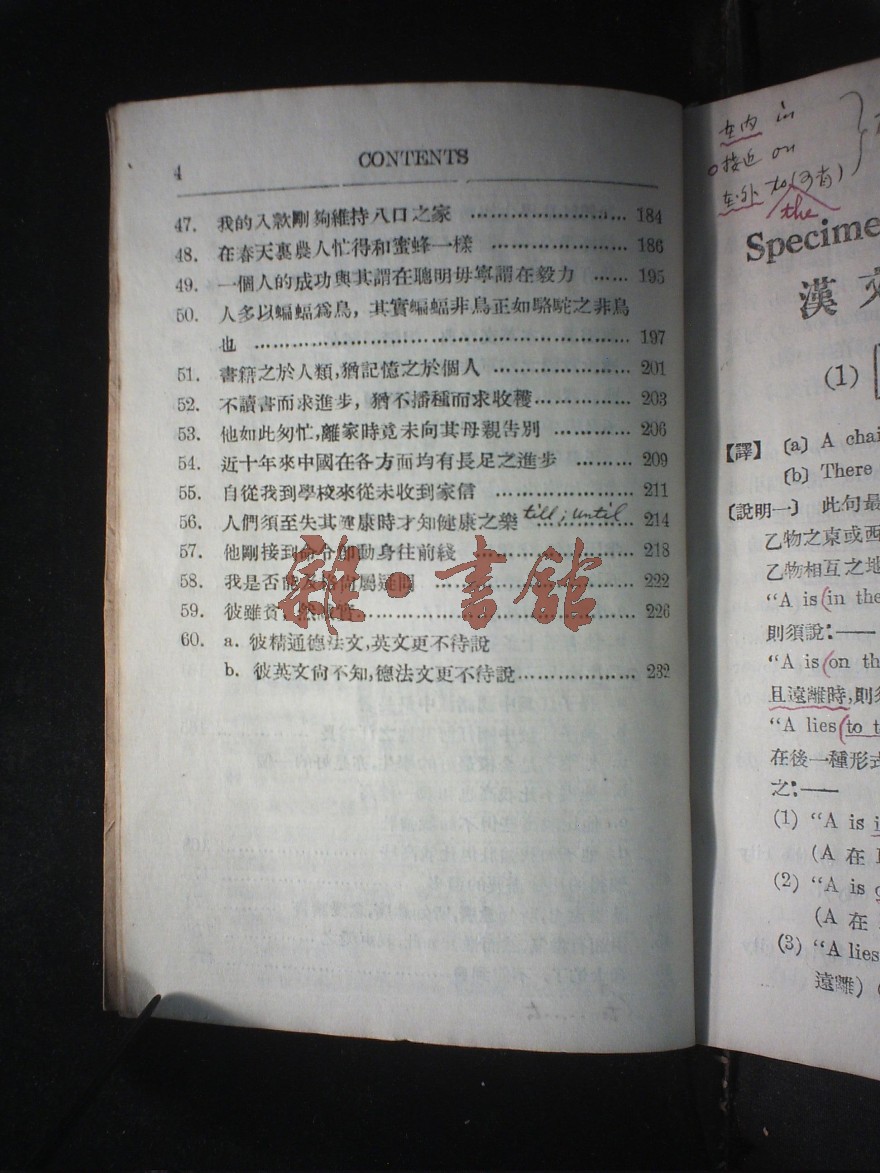 4
CONTENTS
47. 我的入款剛夠維持八口之家 ........................ 184
48. 在春天裏農人忙得和蜜蜂一樣 ..................... 186
49. 一個人的成功與其謂在聰明毋寧謂在毅力 ...... 195
50. 人多以蝙蝠爲鳥，其實蝙蝠非鳥正如駱駝之非鳥
也 ...................................................... 197
51. 書籍之於人類，猶記憶之於個人 .................. 201
52. 不讀書而求進步，猶不播種而求收穫............... 203
53. 他如此匆忙，離家時竟未向其母親告別 ............ 206
54. 近十年來中國在各方面均有長足之進步 ......... 209
55. 自從我到學校來從未收到家信 ..................... 211
56. 人們須至失其健康時才知健康之樂 till; until ............... 214
57. 他剛接到命令卽動身往前綫 ........................ 218
58. 我是否能及格尚屬疑問 .............................. 222
59. 彼雖貧 ................................. 226
60. a. 彼精通德法文，英文更不待說
b. 彼英文尙不知，德法文更不待說.................. 232
雜·書館
在內 in
接近 on
在外 to (可省)
the
Specime
漢文
(1)
【譯】 (a) A chai
(b) There
〔說明一〕 此句最
乙物之東或西
乙物相互之地
“A is (in the
則須說：——
“A is (on th
且遠離時，則須
“A lies (to t
在後一種形式
之：——
(1) “A is i
(A 在
(2) “A is
(A 在
(3) “A lies
遠離)